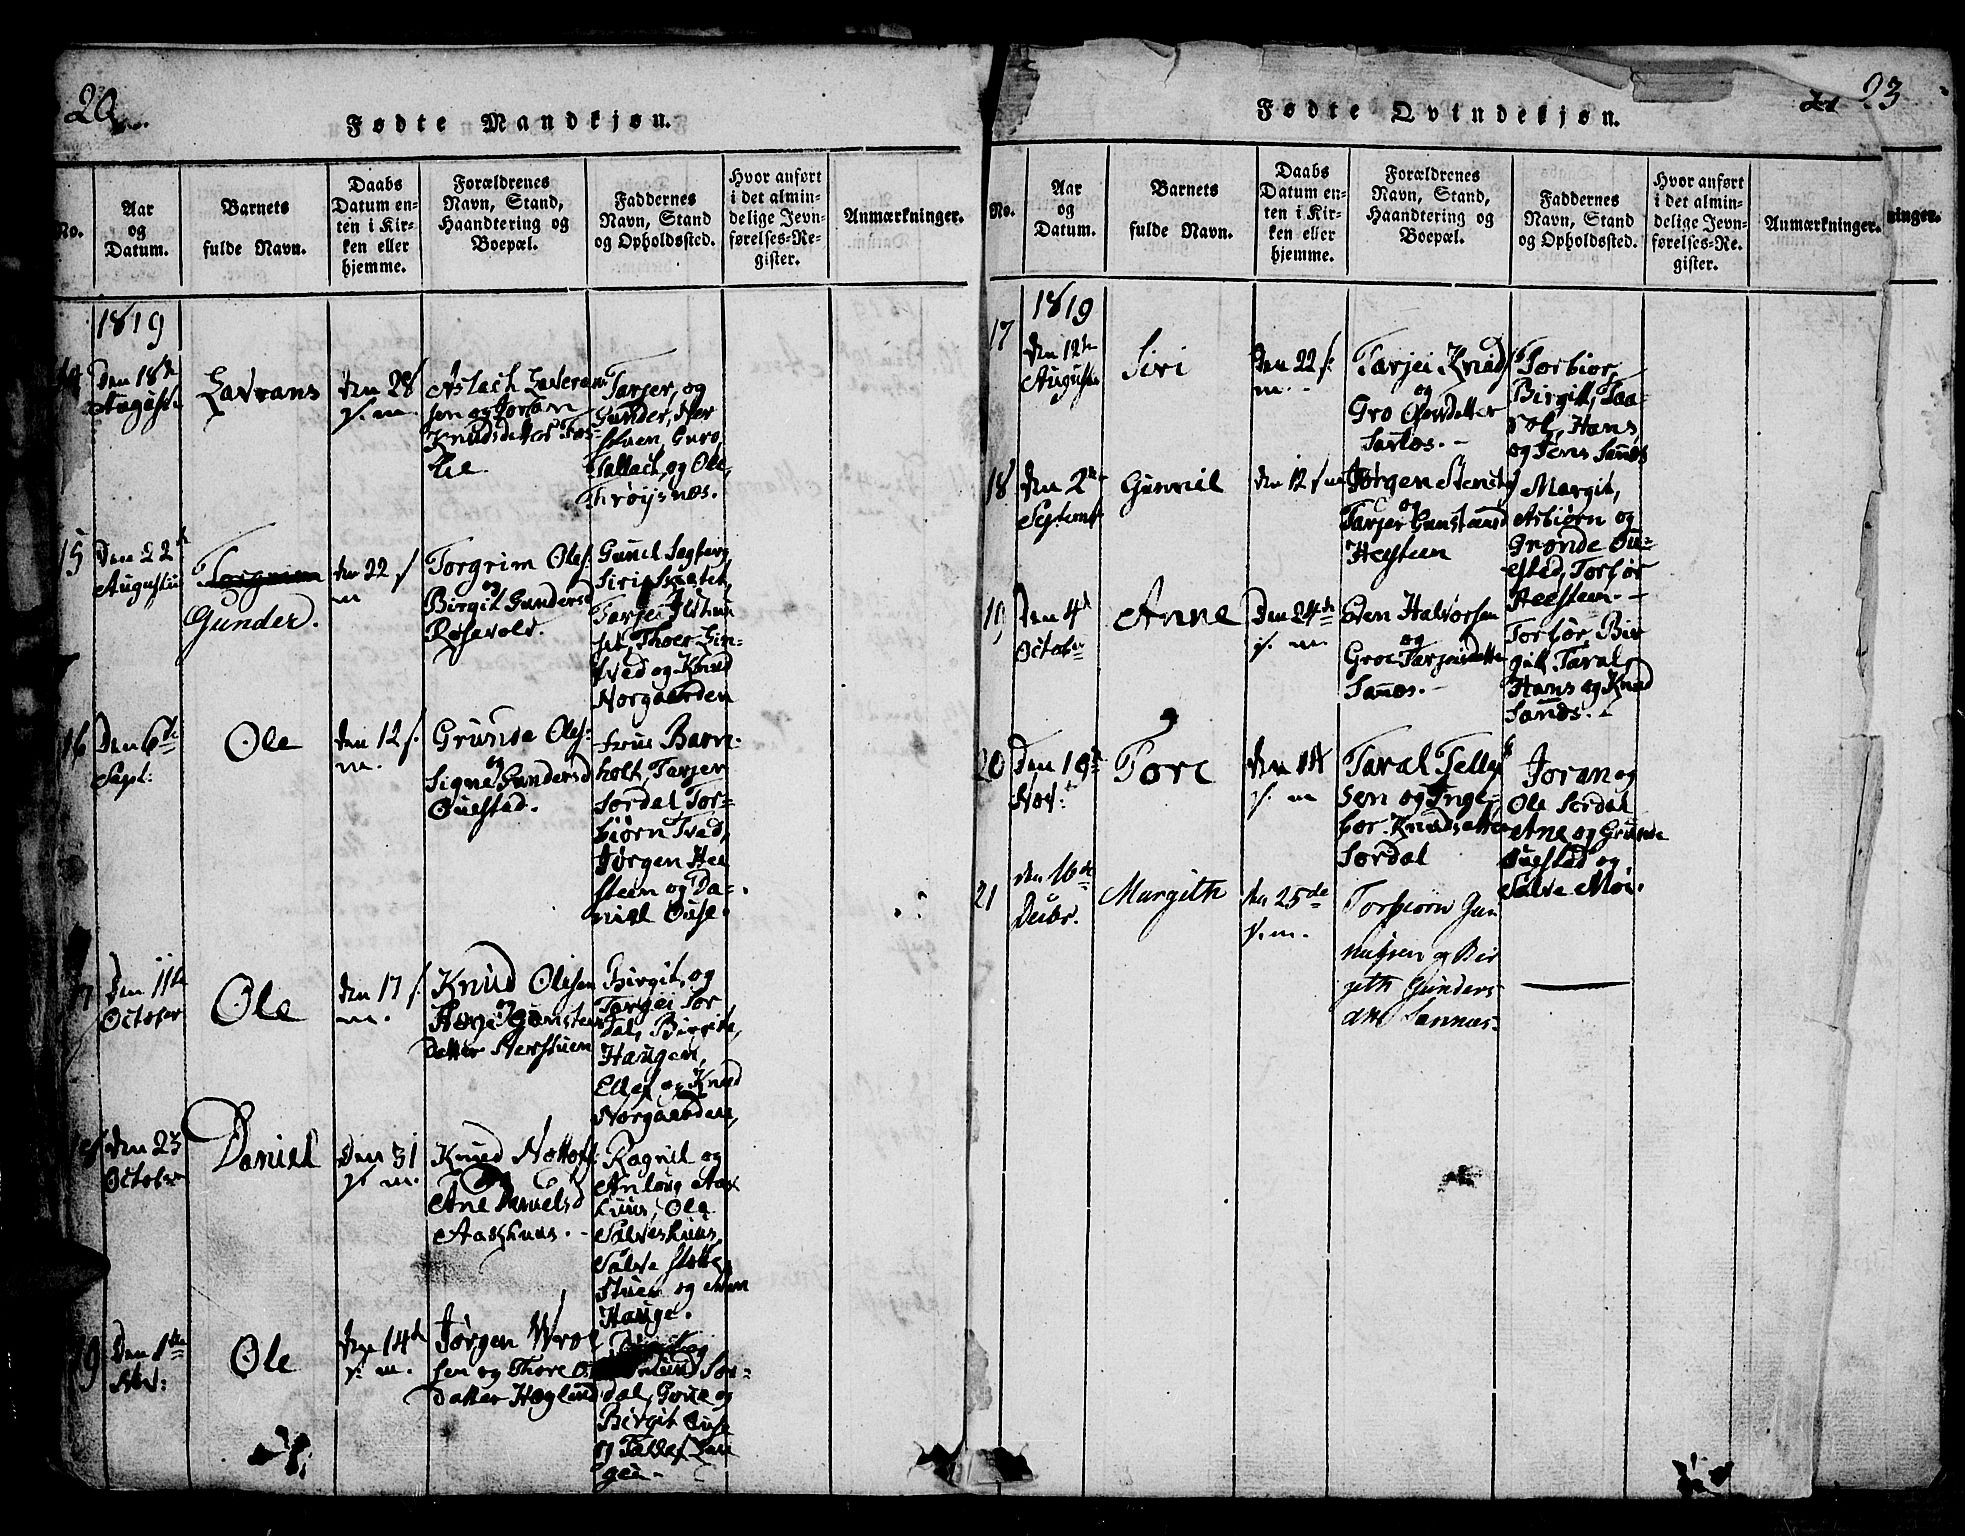 20
Fødte Mandkjøn.
No.
Aar
og
Datum.
Barnets
fulde Navn.
Daabs
Datum en-
ten i Kir-
ken eller
hjemme.
Forældrenes
Navn, Stand,
Haandtering og
Boepæl.
Faddernes
Navn, Stand
og Opholdssted.
Hvor anført
i det almin-
delige Jevn-
førelses-Re-
gister.
Anmærkninger.
1819
14
den 18de
August
Lavrans
den 28
s. m.
Aslach Laveran
sen og Joran
Knudsdatter
Tarjer, og
Gunder, Ner
stuen, Guro,
Tallach, og Ole
Trøijsnæs.
15
Den 22
Augusti
Torgrim
Gunder.
den 22 s
m
Torgrim Oles
og
Birgit Gundersd
Røsevold.
Gunil Sagberg
Siri
Tarjei
Thore Lin-
tved og Knud
Norgaarden
16
Den 6te
Sept:
Ole
den 12 s.
m.
Grunde Oles-
og
Signe Gundersd
Øuestad.
holt, Tarjer
Sordal Tor-
biørn Tved,
Jørgen Hee
steen og Da-
niel Øuse.
17
Den 11te
October
Ole
den 17 s
m.
Knud Olesen
og
Gunsteins
datter Nerstuen
Birgit, og
Tarjei Sor
dal, Birgit,
Haugen,
Ellef og Knud
Norgaarden,
18
den 23
October
Daniel
Den 31
s. m.
Knud
og
Ane Danielsd
Aaschuus.
Ragnil og
Anloug Aas
huus, Ole
Salveshuus,
Salve
stuen og
Hauge.
19
Den 1te
Nov:
Ole
den 14d
s. m.
Jørgen Wrol
sen og Thore O
datter Høglund
og
Sor-
dal, Goue og
Birgit Øuse
og Tallef
gen.
Fødte Qvindekjøn.
23
No.
Aar
og
Datum.
Barnets
fulde Navn.
Daabs
Datum en-
ten i Kir-
ken eller
hjemme.
Forældrenes
Navn, Stand,
Haandtering og
Boepæl.
Faddernes
Navn, Stand
og Opholdssted.
Hvor anført
i det almin-
delige Jevn-
førelses-Re-
gister.
Anmærkninger.
ninger.
1819
17
den 12te
August
Siri
den 22 s.
m.
Tarjei Knuds
og
Gro Olsdatter
Torbior,
Birgitt, Taa-
rol, Hans
og Jens Sannes
18
den 2den
Septemb
Gunvild
den 12 s m
Jørgen Stenst
og
Tarjer Gunstensd
Heesteen
Margit,
Asbiørn og
Grønde Øu-
estad, Torbor
Heesteen.
19
Den 4d
October
Anne
Den 24de
s. m.
Even Halvorsen
og
Groe Tarjeisdatter
Sannes.
Torbør, Bir
git, Taral,
Hans og Knud
Sands.
20
Den 19d
Nov:
Tore
den
s. m
Taral Tellef
sen og Inge-
bor Knudsdatter
Sordal
Joran og
Ole Sordal
Ane og Grunde
Øuestad og
Salve Moi.
21
den 16de
Decbr.
Margith
den 25de
s. m.
Torbiørn Gun
nufsen og Bir
geth Gunders
dtt Sannæs.